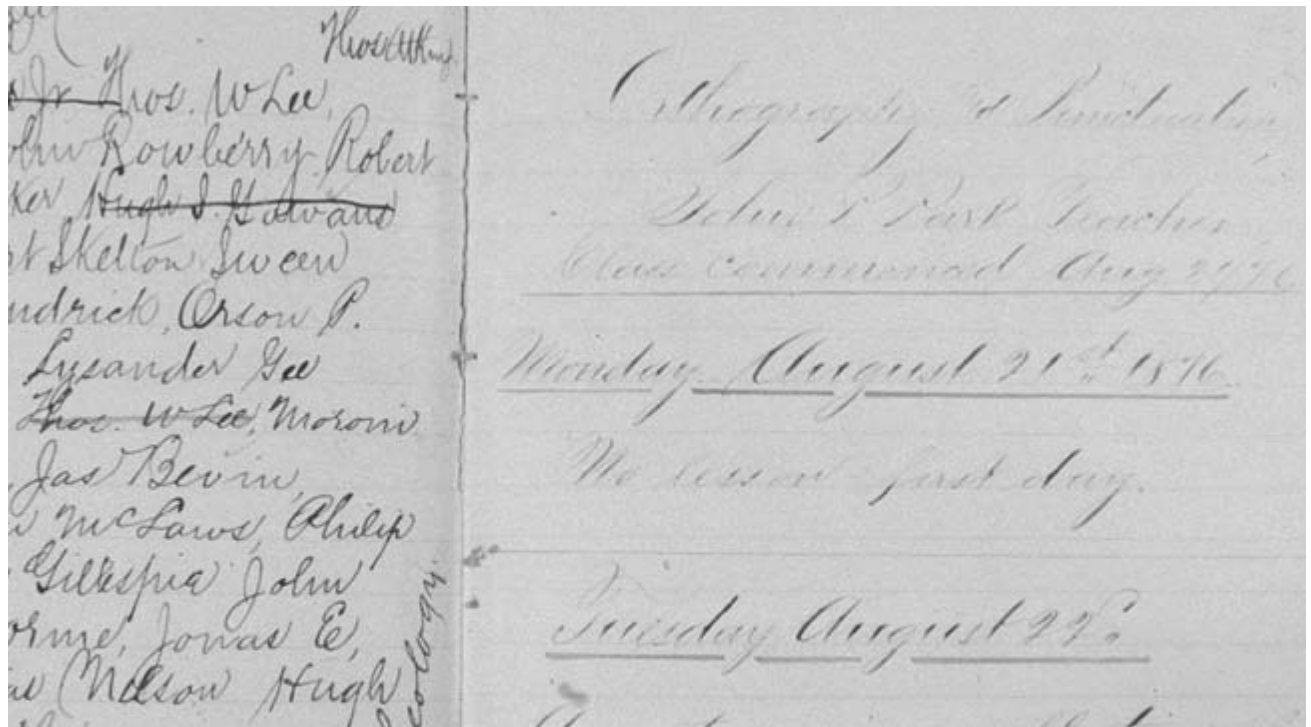 Thos Atkin
Jr Thos. W Lee,
Rowberry Robert
Hugh S. Gowans
Skelton Sween
Orson P.
Lysander Gee
Thos. W Lee, Moroni
Jas Bevin,
McLaws, Philip
Gillespie John
Jonas E,
Nelson Hugh
Orthography & Punctuation,
John R Park Teacher
Class commenced Aug 21/76
Monday August 21st 1876
No lesson first day.
Tuesday August 22d.